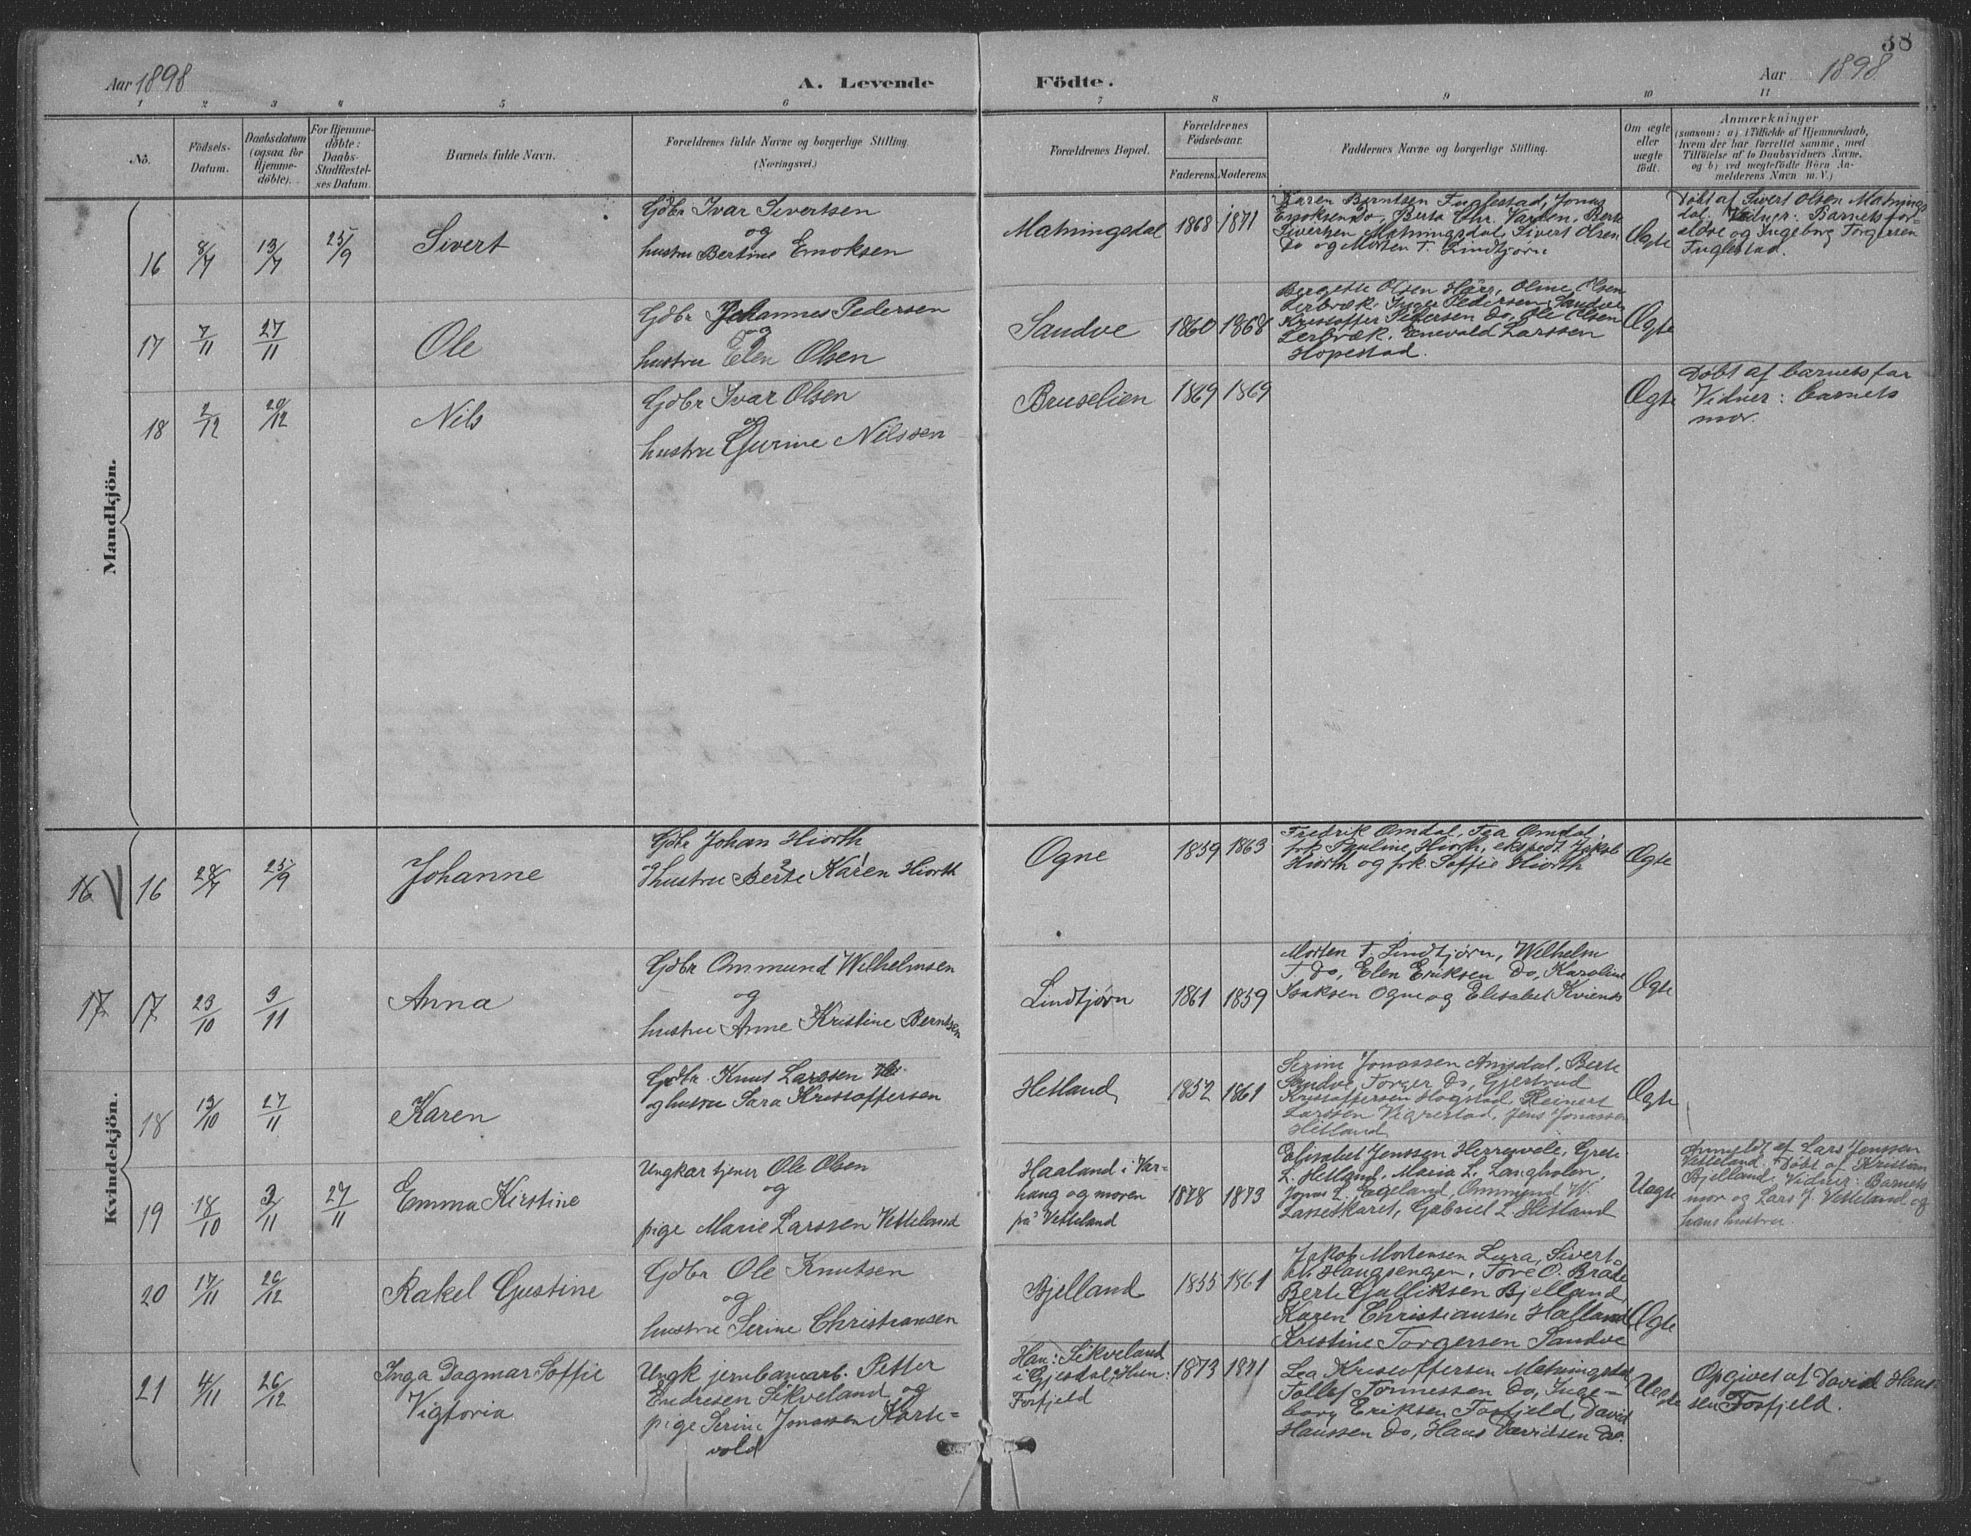 38
Aar 1898
A. Levende Födte.
Aar 1898
1 2 3 4 5 6 7 8 9 10 11
No.
Födsels-
Datum.
Daabsdatum
(ogsaa for
Hjemme-
döbte).
For Hjemme-
döbte:
Daabs-
Stadfæstel-
ses Datum.
Barnets fulde Navn.
Forældrenes fulde Navne og borgerlige Stilling.
(Næringsvei.)
Forældrenes Bopæl.
Forældrenes
Födselsaar.
Faderens. Moderens.
Faddernes Navne og borgerlige Stilling.
Om ægte
eller
uægte
födt.
Anmærkninger
(saasom: a) i Tilfælde af Hjemmedaab,
hvem der har forrettet samme, med
Tilföielse af to Daabsvidners Navne,
og b) ved uægtefödte Börn An-
melderens Navn m. V.)
Mandkjön.
16 8/7 13/7 25/9
Sivert
Gdbr Ivar Sivertsen
og
hustru Bertine Enoksen
Matningsdal 1868 1871
Karen Berntsen Fuglestad, Jonas
Enoksen Do, Berta Chr. Varden, Berte
Sivertsen Matningsdal, Sivert Olsen
Do og Morten T. Lindtjørn
Ægte
Døbt af Sivert Olsen Matnings
dal. Vidner: Barnets for-
ældre og Ingeborg Torgersen
Fuglestad.
17 7/11 27/11
Ole
Gdbr Johannes Pedersen
og
hustru Elen Olsen
Sandve 1860 1868
Bergette Olsen Hårr, Oline Olsen
Lerbræk, Inger Pedersen Sandve,
Kristoffer Pedersen Do, Ole Olsen
Lerbræk, Enevald Larssen
Hopestad.
Ægte
18 2/12 20/12
Nils
Gdbr Ivar Olsen
og
hustru Gurine Nilssen
Bruselien 1869 1869
Ægte
Døbt af barnets far
Vidner: barnets
mor.
Kvindekjön.
16 16 28/7 25/9
Johanne
Gdbr Johan Hiorth
hustru Berte Karen Hiorth
Ogne 1859 1863
Fredrik Omdal, Tea Omdal,
frk Pauline Hiorth, ekspedt. Jakob
Hiorth og frk. Soffie Hiorth
Ægte
17 17 23/10 3/11
Anna
Gdbr Ommund Wilhelmsen
og
hustru Anne Kristine Berntsen
Lindtjørn 1861 1859
Morten T. Lindtjørn, Wilhelm
T. Do, Elen Eriksen Do, Karoline
Isaksen Ogne og Elisabet Kvienes
Ægte
18 12/10 27/11
Karen
Gdbr. Knut Larssen
og hustru Sara Kristoffersen
Hetland 1852 1861
Serine Jonassen Anisdal, Berte
Sandve, Torger Do, Gjertrud
Kristoffersen Høgstad, Reinert
Larssen Vigrestad, Jens Jonassen
Hetland
Ægte
19 18/10 3/11 27/11
Emma Kirstine
Ungkar tjener Ole Olsen
og
pige Marie Larssen Vetteland
Haaland i Var-
haug og moren
på Vetteland
1878 1873
Elisabet Jenssen Herrevele, Grete
L. Hetland, Maria L. Langholen,
Jonas L. Ægeland, Ommund W.
Lassetskaret, Gabriel L. Hetland
Uægte
Anmeldt af Lars Jenssen
Vetteland. Døbt af Kristian
Bjelland. Vidner: Barnets
mor og Lars J. Vetteland og
hans hustru.
20 17/11 26/12
Rakel Gustine
Gdbr Ole Knutsen
og
hustru Serine Christiansen
Bjelland 1855 1861
Jakob Mortensen Lura, Sivert
Haugsengen, Tore O. Bråde
Berte Gulliksen Bjelland
Karen Christiansen Halland
Kristine Torgersen Sandve
Ægte
21 4/11 26/12
Inga Dagmar Soffie
Vigtoria
Ungk jernbanearb. Petter
Endresen Sikveland og
pige Serine Jonassen Karte-
vold
Han: Sikveland
i Gjesdal, Hun:
Fosfjeld
1873 1871
Lea Kristoffersen Matningsdal
Tollef Tønnessen Do, Inge-
borg Eriksen Fosfjeld, David
Hanssen Do, Hans Davidsen Do.
Uægte
Opgivet af David Hans-
sen Fosfjeld.